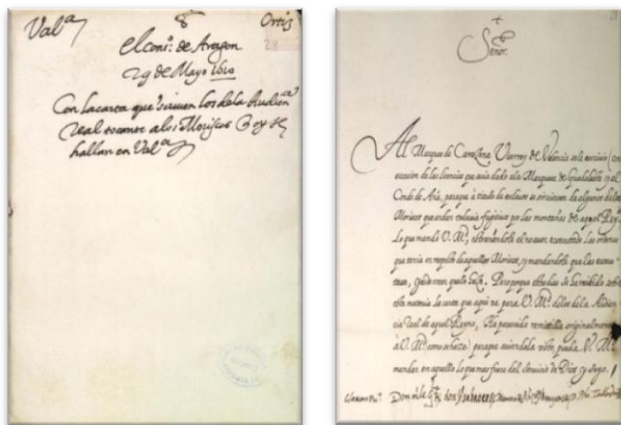 Val.ª 8 Ortiz
28
El cons.º de Aragon
29 de Mayo 1610
Con la carta que escriven los de la Audien.ª
Real tocante a los Moriscos q oy se
hallan en Val.ª
+
Señor
Al Marques de Caraçena Virrey de Valencia se le escrivio (con
occasion de las licencias que avia dado a la Marquesa de Guadaleste y al
Conde de para que a titulo de esclavos se sirviessen de algunos de los
Moriscos que andan todavia fugitivos por las montañas de aquel Rey.º
Lo que mandó V. M.d el no aver executado las ordenes
que tenia en respeto de aquellos Moriscos, y mandandole que las execu-
tase, Pero porque estos dias se ha recibido sobre
esta materia la carta que aqui va para V. M.d de los de la Audien-
cia Real de aquel Reyno, Ha parecido remitilla originalmente
a V. M.d como se haze para que aviendola visto pueda V. M.d
mandar en aquello lo que mas fuere del servicio de Dios y suyo.
Don